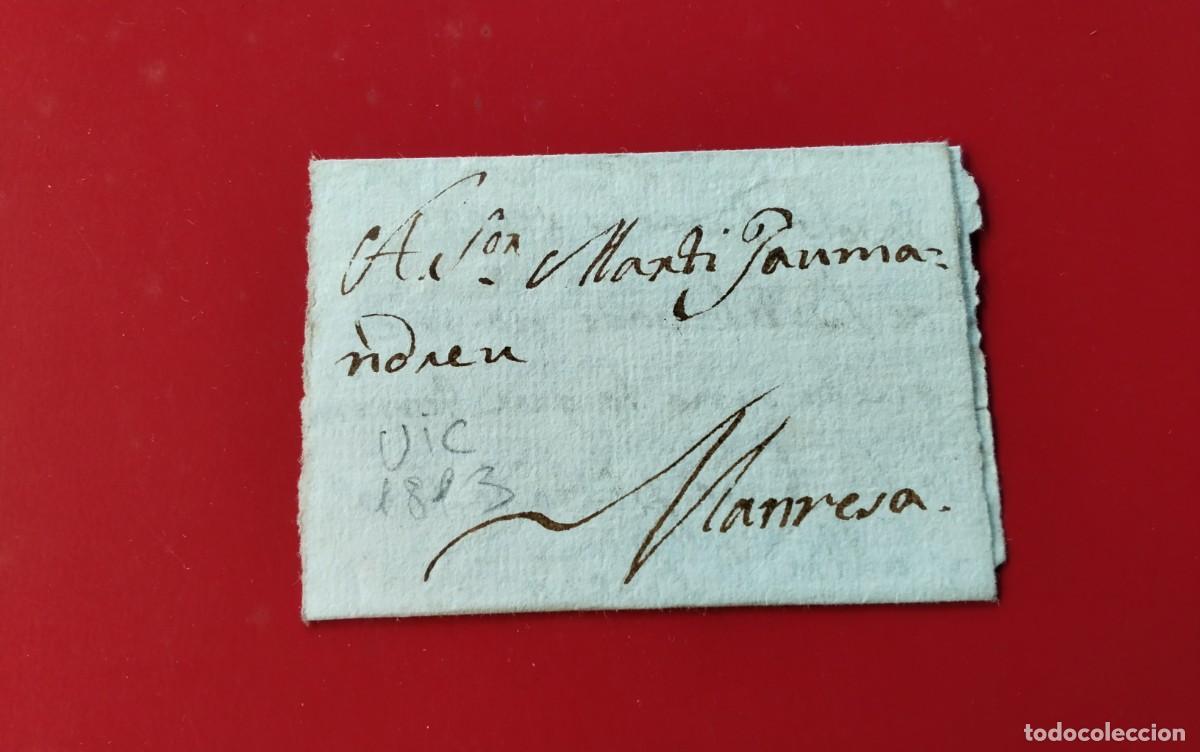 A Sor. Marti Jauma=
ndreu
UIC
1813
Manresa.
todocoleccion